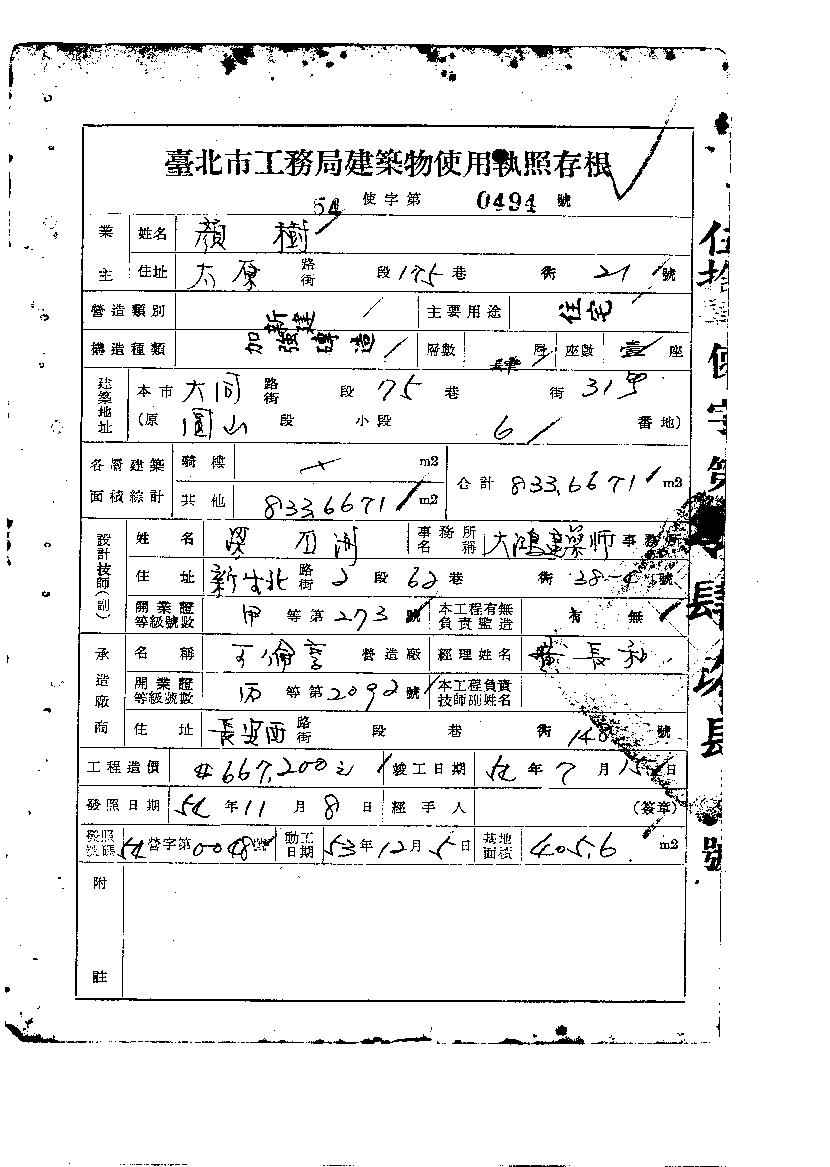 臺北市工務局建築物使用執照存根
54 使字第 0494 號
業主 姓名 顏 樹
住址 太原 路街 段 175 巷 街 21 號
營造類別 新建 主要用途 住宅
構造種類 加強磚造 層數 肆 層 座數 壹 座
建築地址 本市 大同 路街 段 75 巷 街 31號
(原 圓山 段 小段 61 番地)
各層建築面積綜計 騎樓 m2 合計 833.6671 m2
其他 833.6671 m2
設計技師(副) 姓名 事務所名稱 大鴻建築師 事務所
住址 新生北 路街 2 段 62 巷 街 28-4 號
開業證等級號數 甲 等第 273 號 本工程有無負責監造 有 無
承造廠商 名稱 營造廠 經理姓名 黃長和
開業證等級號數 丙 等第 2092 號 本工程負責技師副姓名
住址 長安西 路街 段 巷 街 148 號
工程造價 #667,200元 竣工日期 54 年 7 月 15 日
發照日期 54 年 11 月 8 日 經手人 (簽章)
發照號碼 54 營字第 0048 號 動工日期 53 年 12 月 5 日 基地面積 405.6 m2
附註
伍拾肆使字第 肆玖肆號